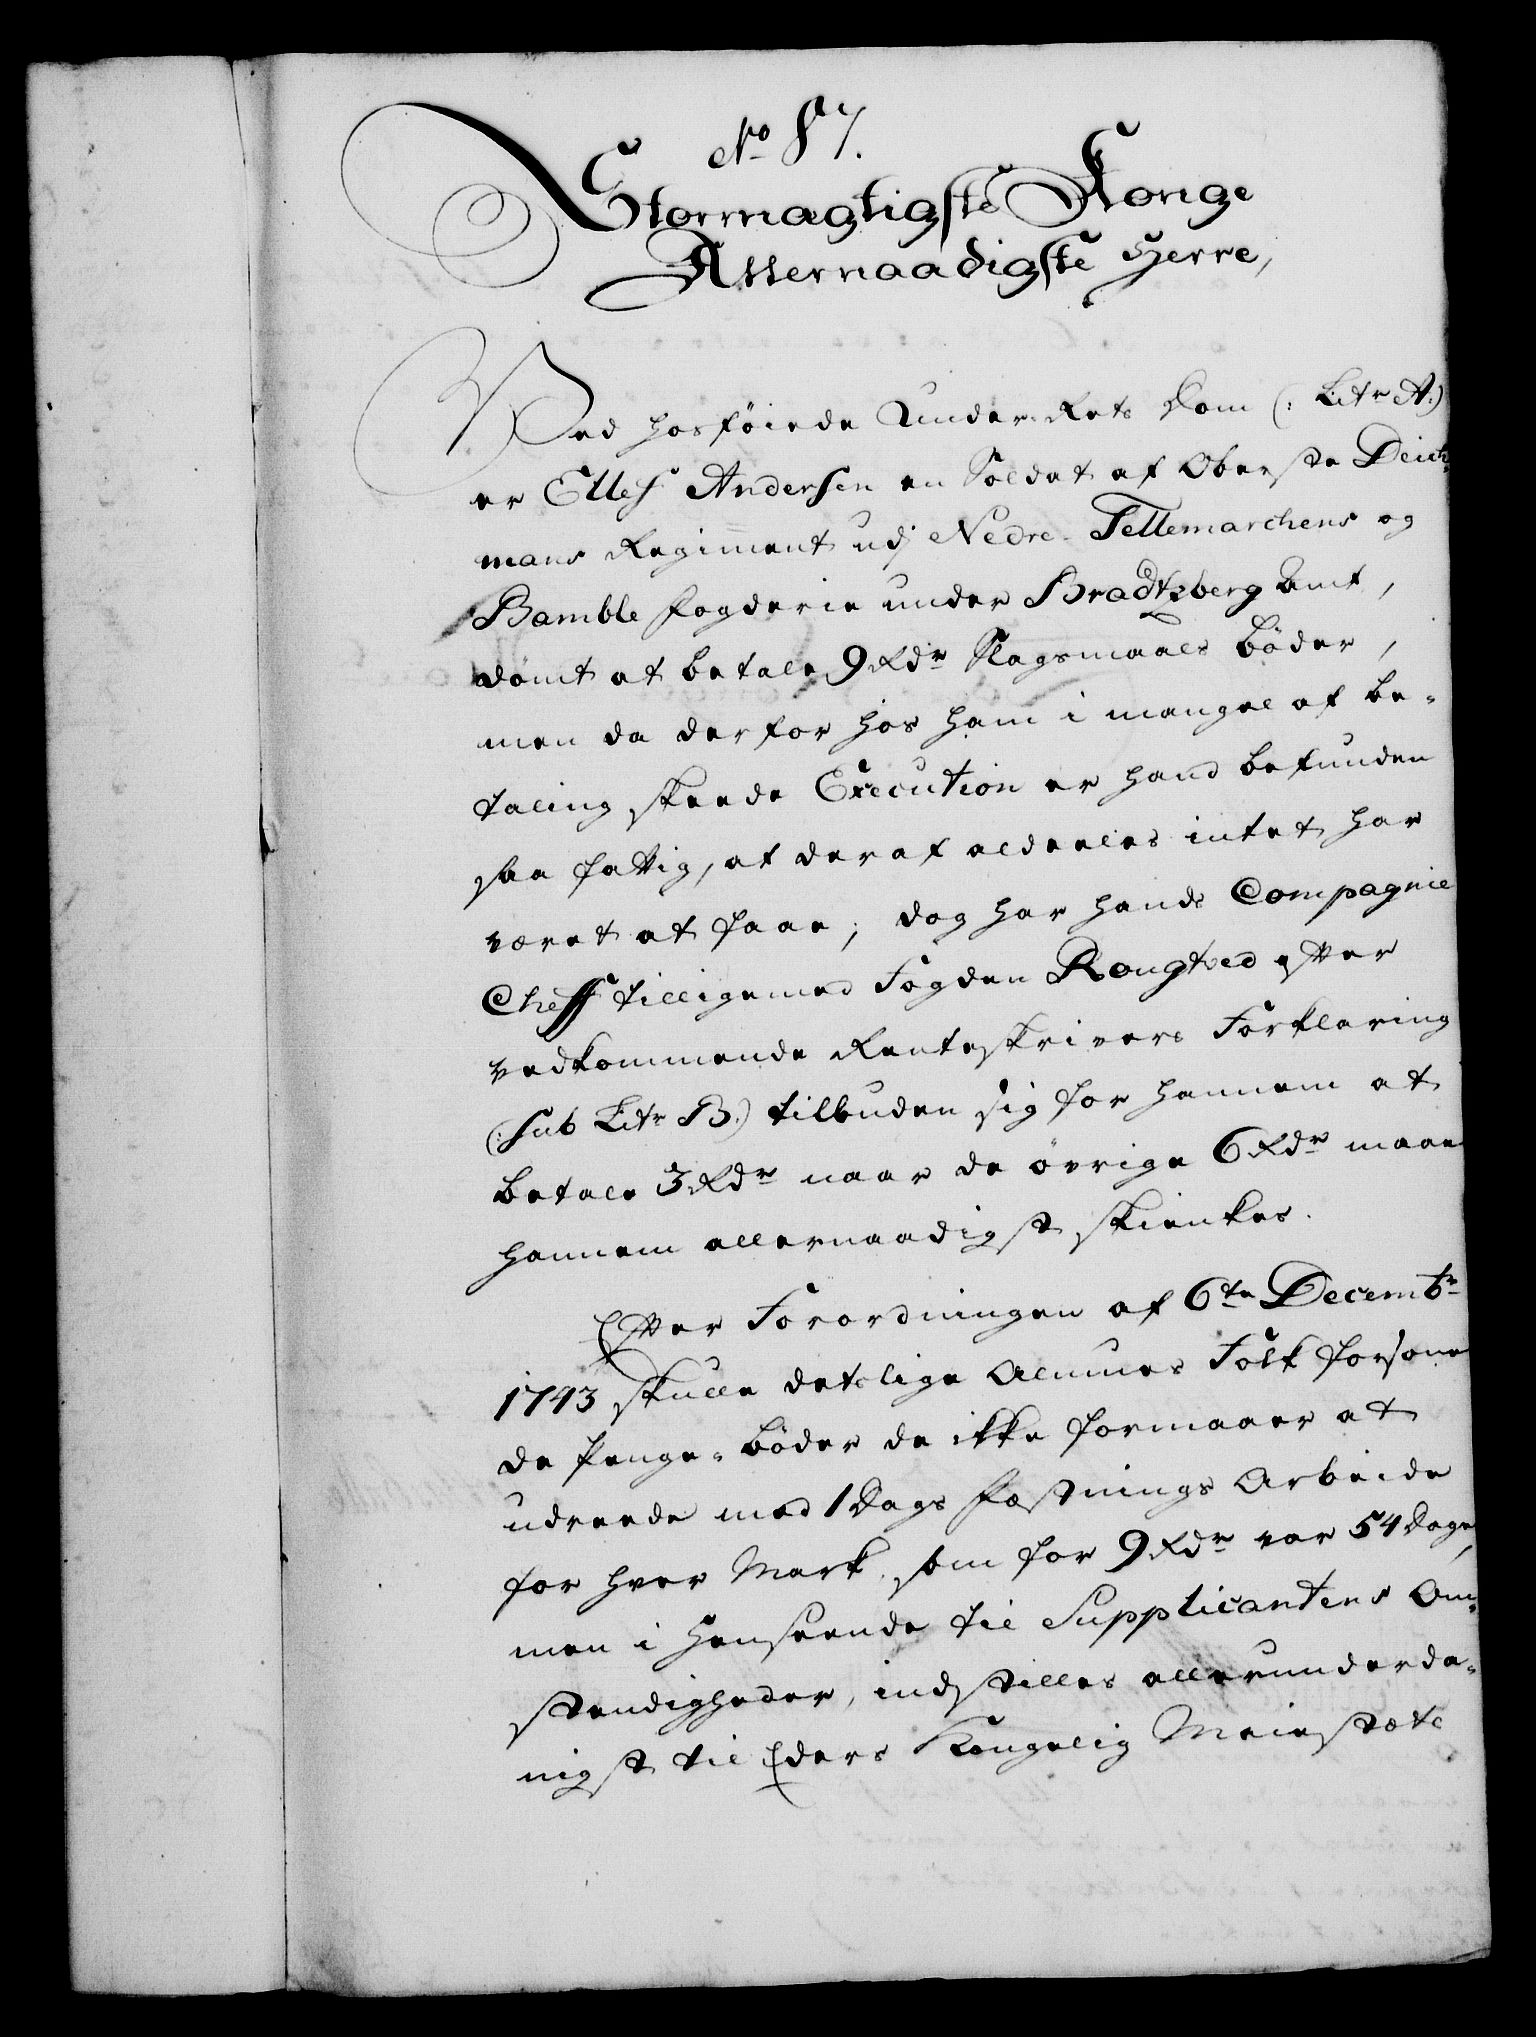 No 87.
Stormægtigste Konge
Allernaadigste Herre,
Ved hosföiede Under-Rets Dom (: Litr A:)
er Ellef Andersen en Soldat af Oberste Deich-
mans Regiment udj Nedre-Tellemarchens og
Bamble Fogderie under Bradtzberg Amt,
dömt at betale 9 Rdr Slagsmaals Böder,
men da derfor hos ham i mangel af be-
taling skeede Execution er hand befunden
saa fattig, at deraf aldeeles intet har
været at faae, dog har hands Compagnie
Cheff tilligemed Fogden Rougtved efter
vedkommende Renteskrivers Forklaring
(: sub Litr B:) tilbuden sig for hannem at
betale 3 Rdr naar de övrige 6 Rdr maae
hannem allernaadigst skienkes.
Efter Forordningen af 6te Decembr
1743 skulle detslige Almues Folk forsone
de Penge-Böder de ikke formaaer at
udreede med 1 Dags Fæstnings Arbeide
for hver Mark, som for 9 Rdr var 54 Dage,
men i Henseende til Supplicantens Om-
stendigheder, indstilles allerunderda-
nigst til Eders Kongelig Maiestæts